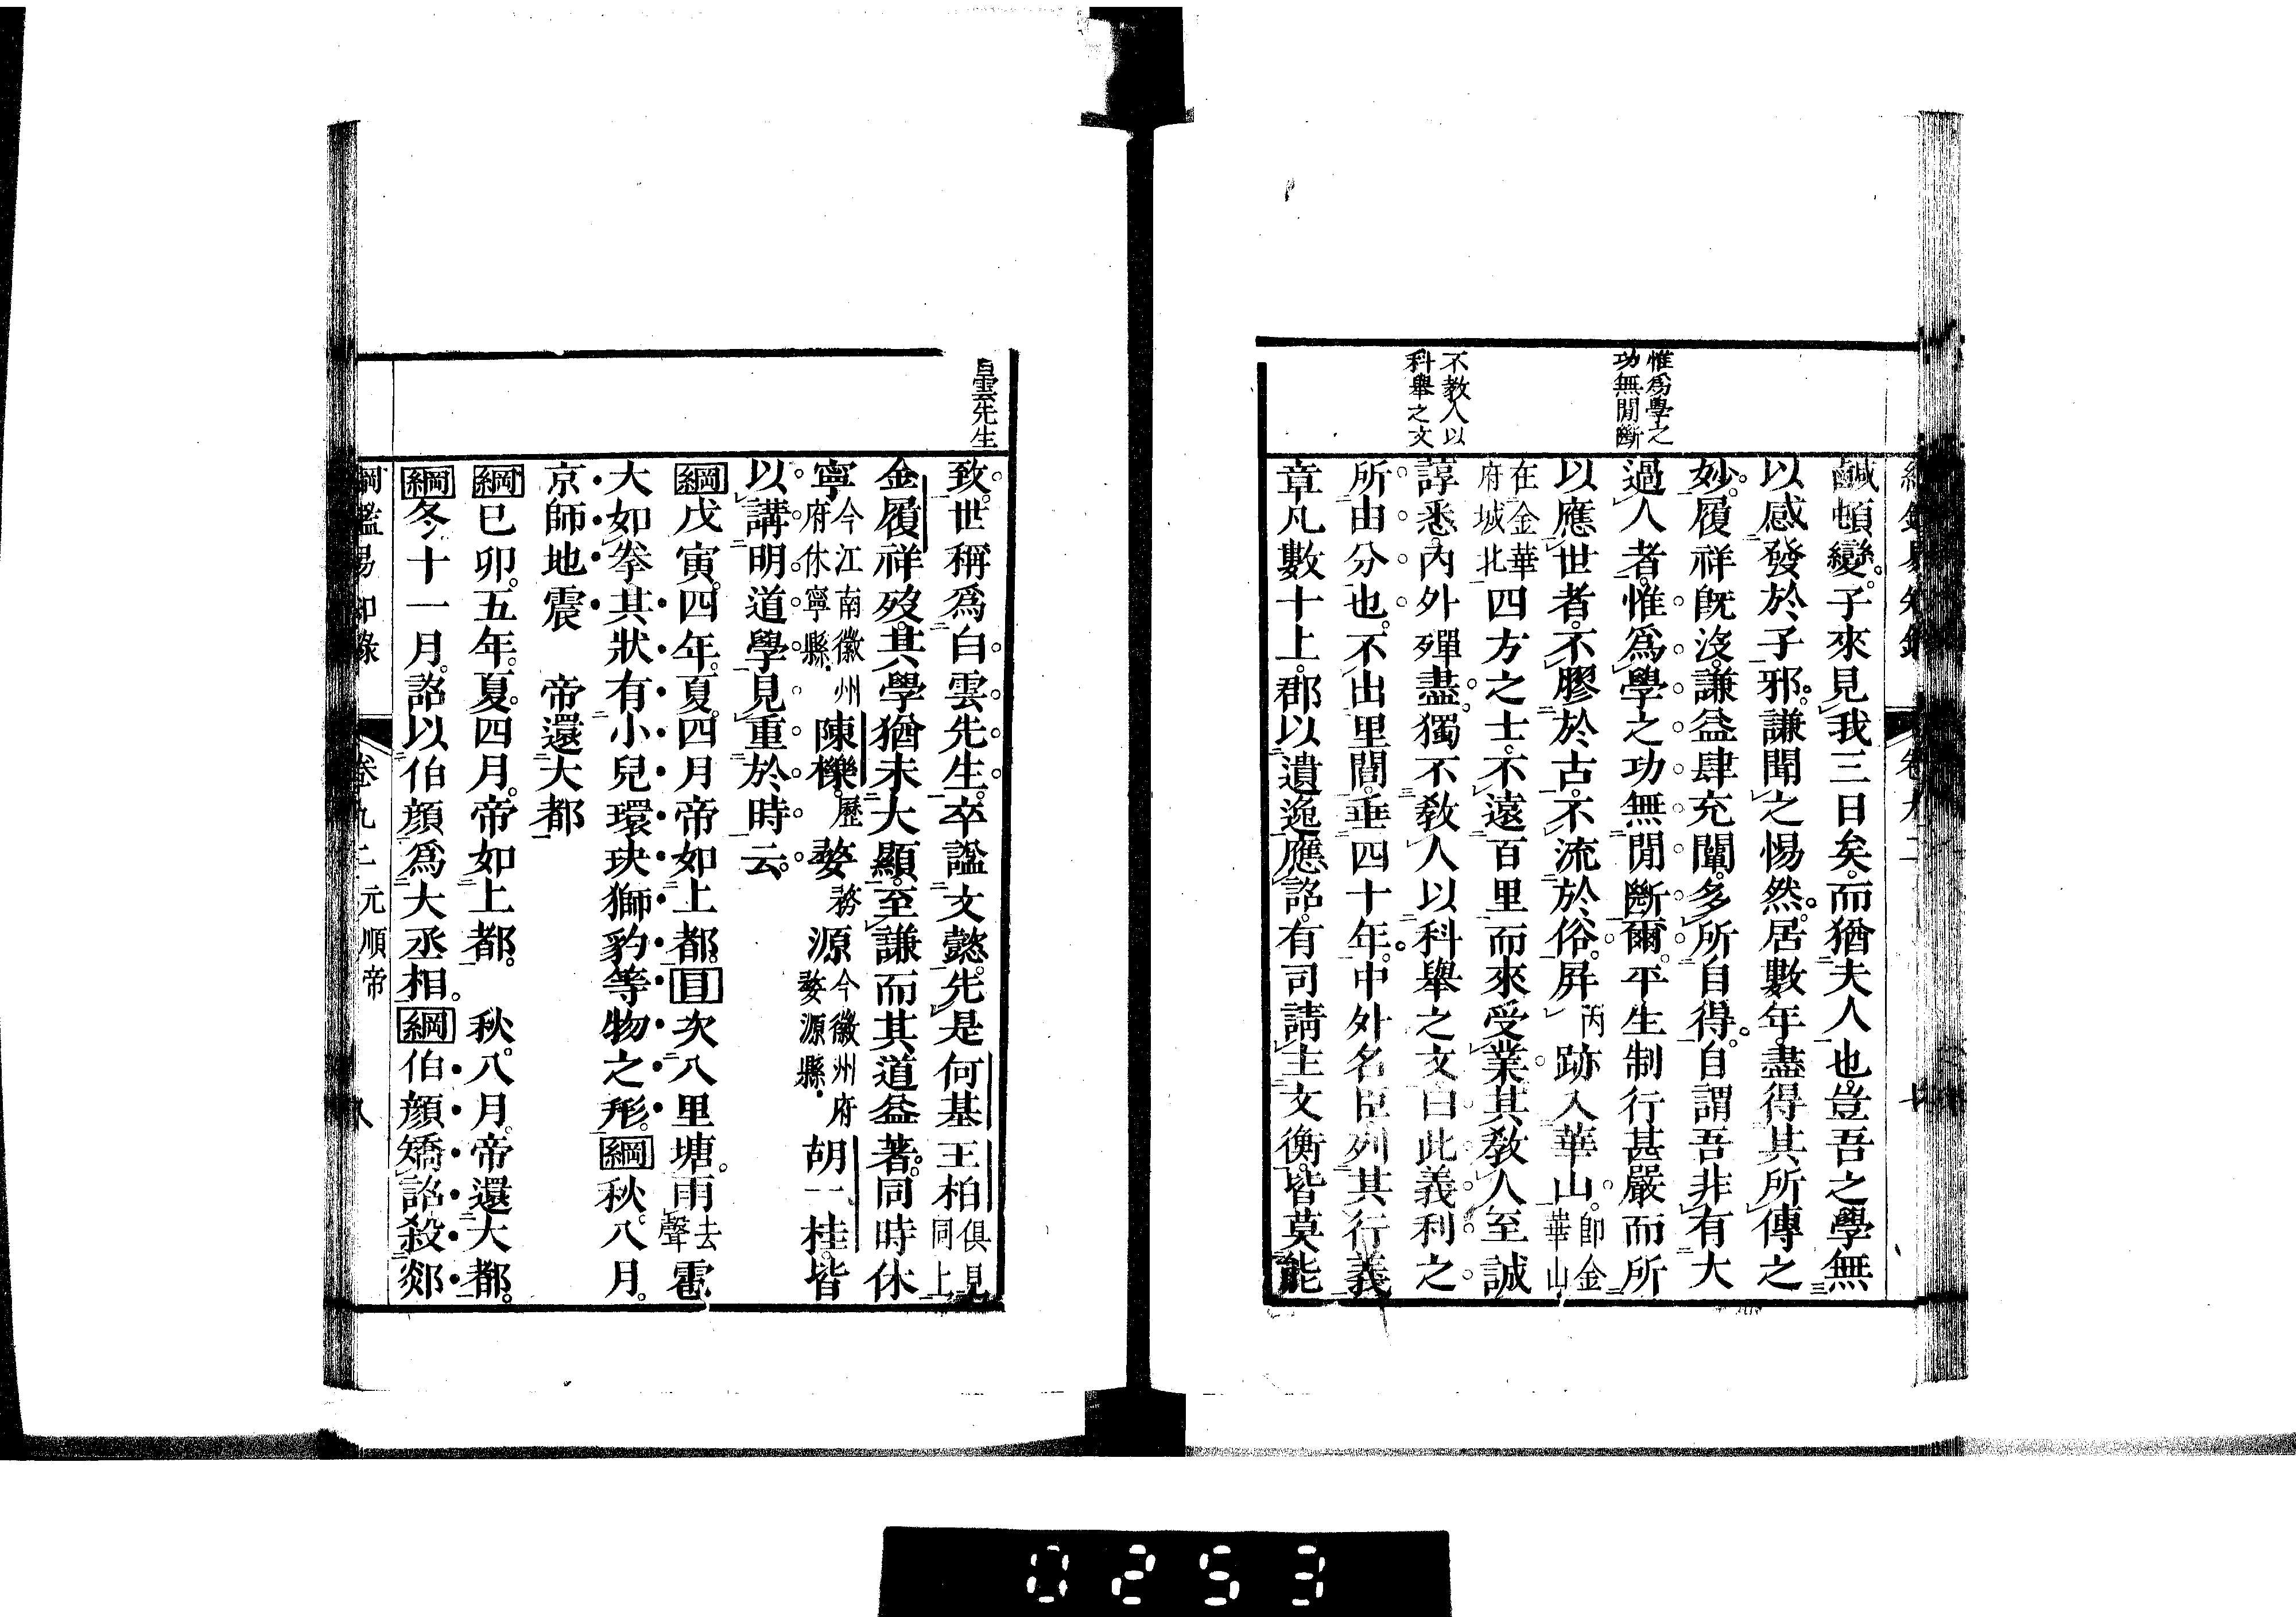 惟爲學之
功無閒斷
不教人以
科舉之文
鹹頓變子來見我三日矣而猶夫人也豈吾之學無
以感發於子邪謙聞之惕然居數年盡得其所傳之
妙履祥旣沒謙益肆充闡多所自得自謂吾非有大
過人者惟爲學之功無閒斷爾平生制行甚嚴而所
以應世者不膠於古不流於俗屛丙跡入華山卽金華山
在金華府城北四方之士不遠百里而來受業其教人至誠
諄悉內外殫盡獨不教人以科舉之文曰此義利之
所由分也不出里閭垂四十年中外名臣列其行義
章凡數十上郡以遺逸應詔有司請主文衡皆莫能
白雲先生
致世稱爲白雲先生卒謚文懿先是何基王柏俱見同上
金履祥歿其學猶未大顯至謙而其道益著同時休
寧今江南徽州府休寧縣陳櫟歷婺務源今徽州府婺源縣胡一桂皆
以講明道學見重於時云
綱戊寅四年夏四月帝如上都目次八里塘雨去聲雹
大如拳其狀有小兒環玦獅豹等物之形綱秋八月
京師地震　帝還大都
綱巳卯五年夏四月帝如上都　秋八月帝還大都
綱冬十一月詔以伯顏爲大丞相綱伯顏矯詔殺郯
綱鑑易知錄　卷九二　元順帝　八
0253